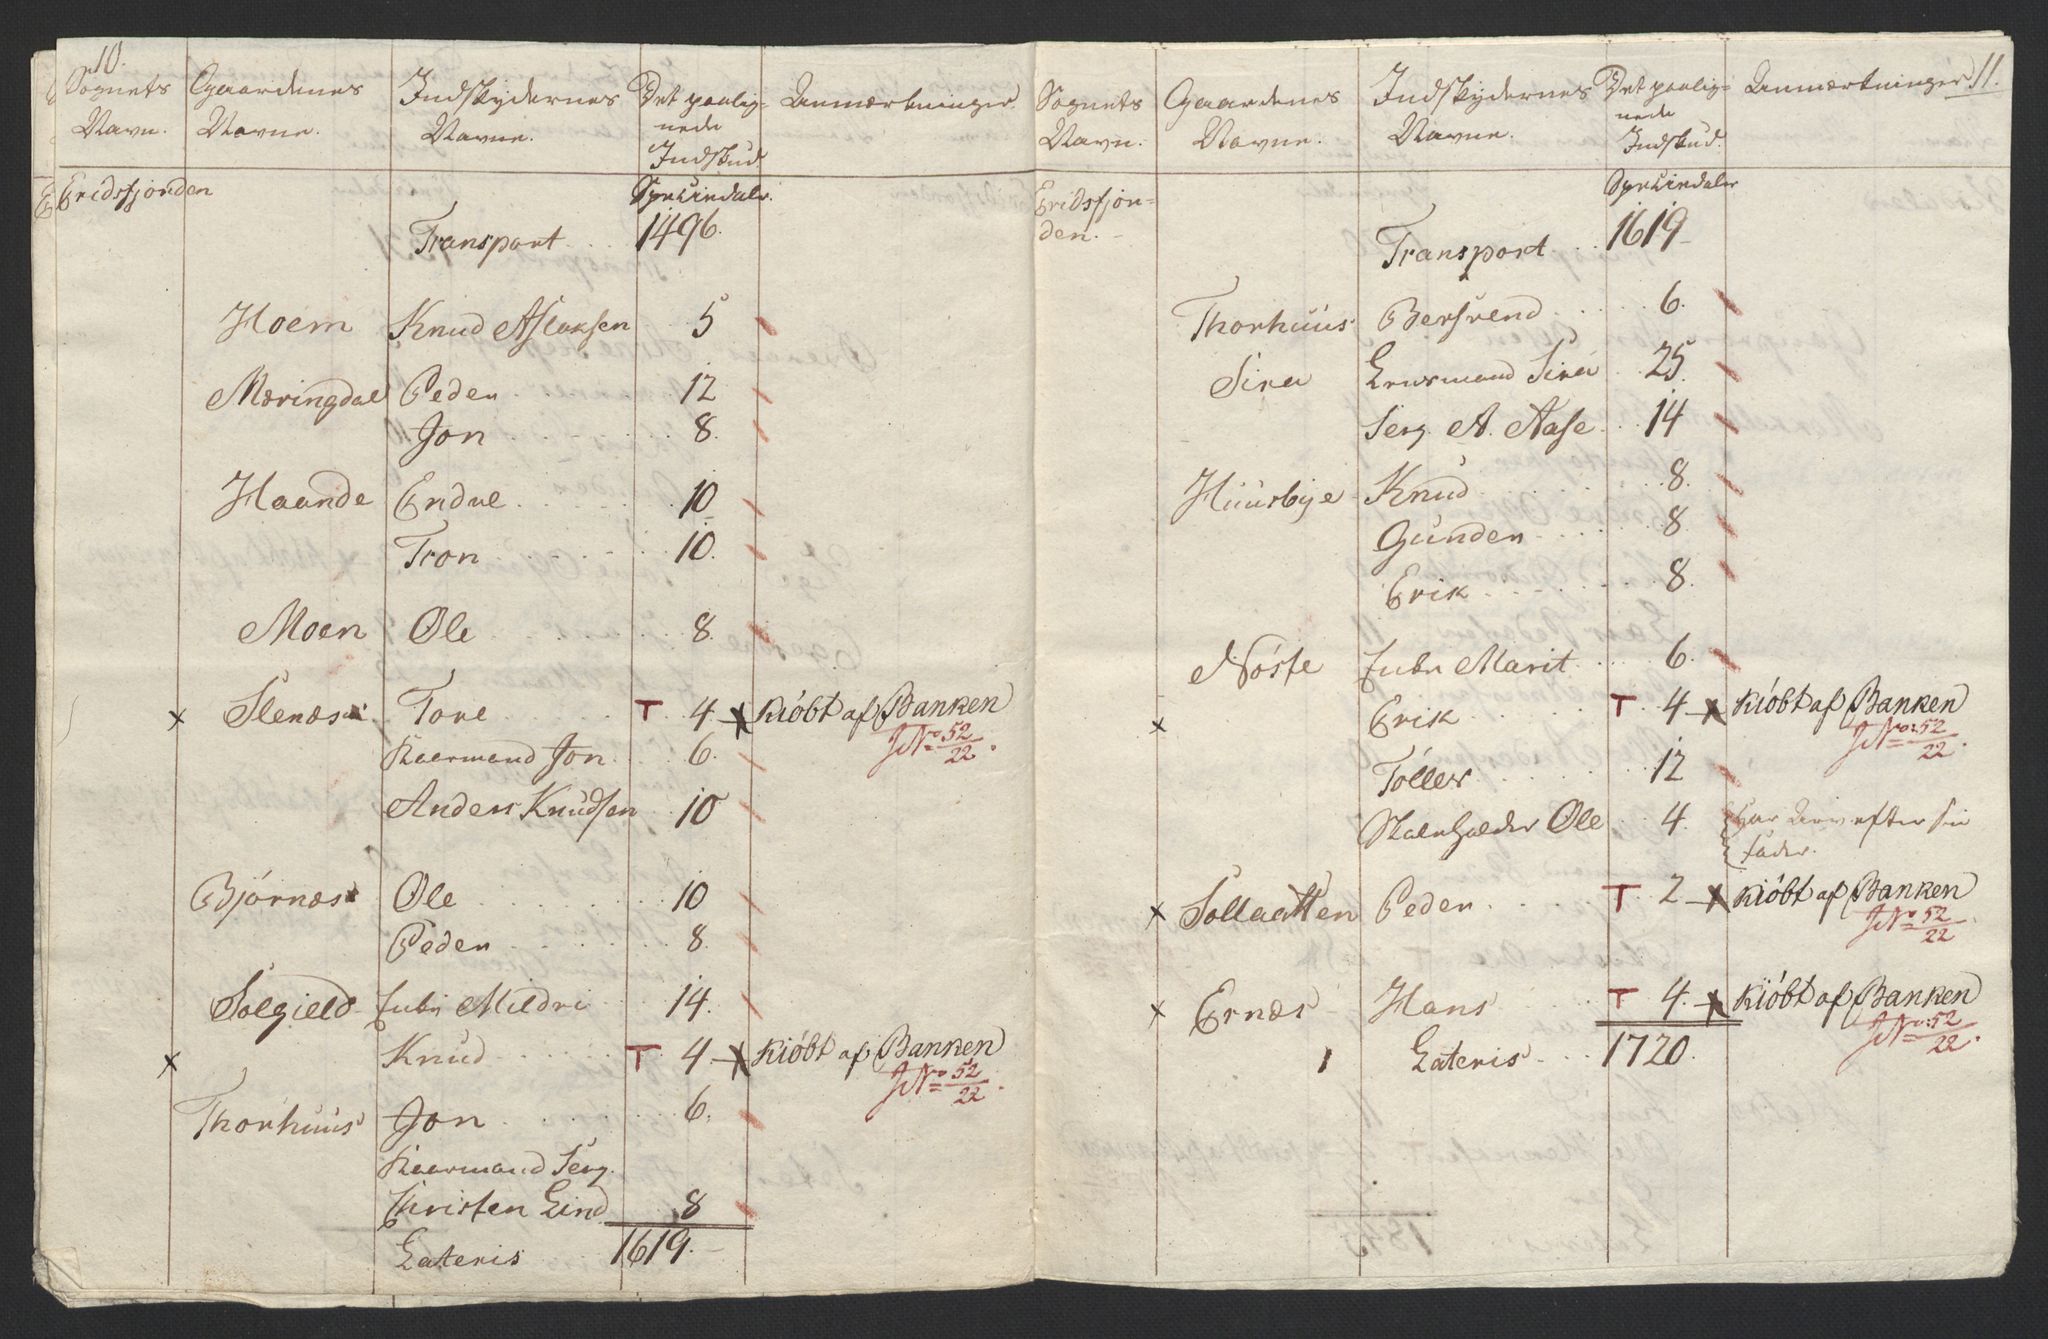 10.
Sognets Navn. Gaardenes Navne. Indskydernes Navne. Det paalignede Indskud Anmærkninger
Eridsfjorden Speciedaler.
Transport 1496.
Hoem Knud Aslaksen 5
Mæringdal Peder 12
Jon 8.
Haande Endre 10
Tron 10.
Moen Ole 8.
x Stenæs Tore T 4 x Kiöbt af Banken
JNo 52/22.
Kaarmand Jon 6.
Anders Knudsen 10
Bjórnæs Ole 10
Peder 8.
Solgield Enke Mildri 14.
x Knud T 4 x Kiöbt af Banken
JNo 52/22.
Thorhuus Jon 6.
Kaarmand Serg.
Christen Lind 8
Lateris 1619.
11.
Sognets Navn. Gaardenes Navne. Indskydernes Navne. Det paalignede Indskud. Anmærkninger
Eridsfjorden. Speciedaler
Transport 1619
Thorhuus Bersvend 6.
Sira Lensmand Sira 25.
Serg. A. Aase 14
Huusbye Knud 8.
Gunder 8.
Erik 8.
Nöste Enke Marit 6.
x Erik T 4 x Kiöbt af Banken
JNo: 52/22.
Töller 12
Skaenhalder Ole 4. har Arv efter sin
fader.
x Sollaatten Peder T 2 x Kiöbt af Banken
JNo 52/22.
x Ernæs Hans T 4. x Kiöbt af Banken
JNo: 52/22.
1 Lateris 1720.